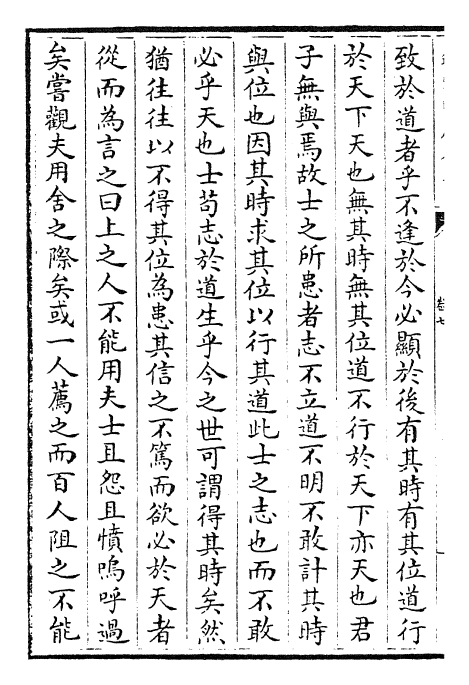 致於道者乎不逢於今必顯於後有其時有其位道行
於天下天也無其時無其位道不行於天下亦天也君
子無與焉故士之所患者志不立道不明不敢計其時
與位也因其時求其位以行其道此士之志也而不敢
必乎天也士苟志於道生乎今之世可謂得其時矣然
猶往往以不得其位為患其信之不篤而欲必於天者
從而為言之曰上之人不能用夫士且怨且憤嗚呼過
矣嘗觀夫用舍之際矣或一人薦之而百人阻之不能
卷七